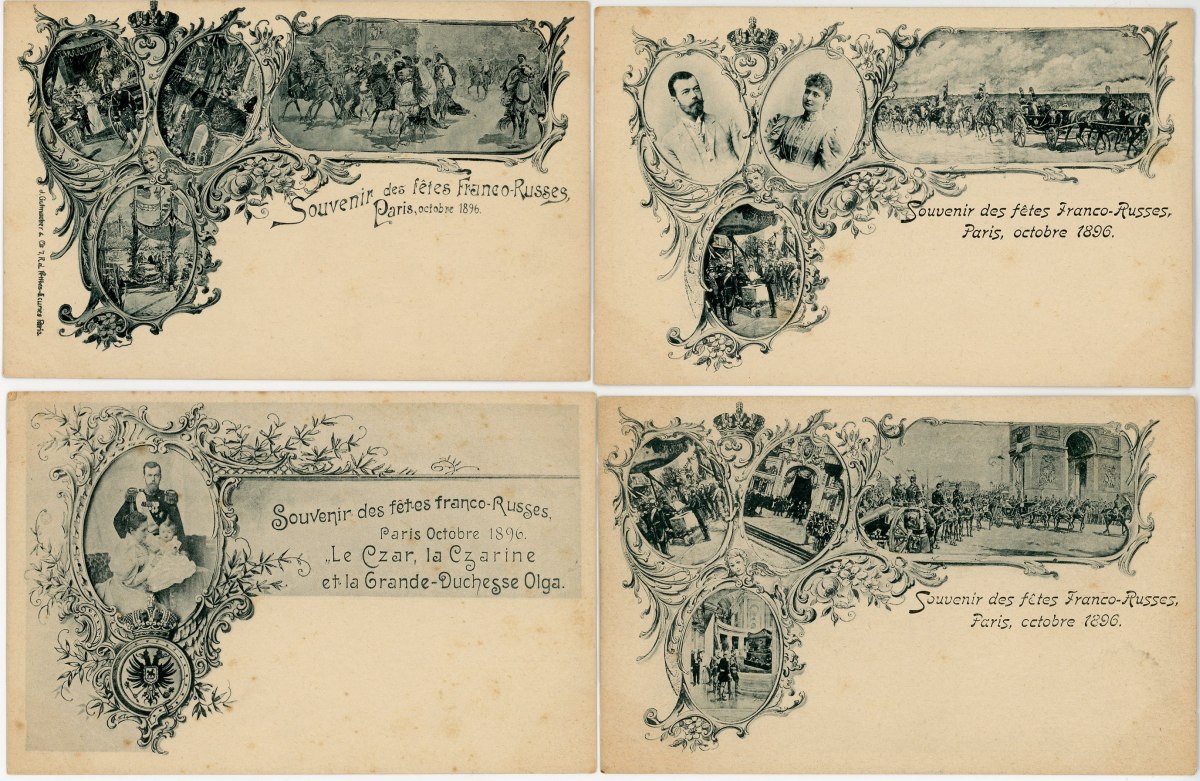 Souvenir des fêtes Franco-Russes,
Paris, octobre 1896.
Souvenir des fêtes Franco-Russes,
Paris, octobre 1896.
Souvenir des fêtes franco-Russes,
Paris Octobre 1896.
„Le Czar, la Czarine
et la Grande-Duchesse Olga.
Souvenir des fêtes Franco-Russes,
Paris, octobre 1896.